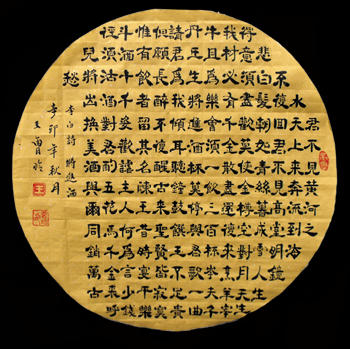 君不見黃河之
水天上來奔流到海
不復回君不見高堂明鏡
悲白髮朝如青絲暮成雪人生
得意須盡歡莫使金樽空對月天生
我材必有用千金散盡還復來烹羊宰
牛且爲樂會須一飲三百杯岑夫子
丹丘生將進酒杯莫停與君歌一曲
請君爲我傾耳聽鐘鼓饌玉不足貴
但願長醉不復醒古來聖賢皆寂寞
惟有飲者留其名陳王昔時宴平樂
斗酒十千恣歡謔主人何爲言少錢
徑須沽取對君酌五花馬千金裘呼
兒將出換美酒與爾同銷萬古
愁
李白詩 將進酒
辛卯年秋月
王